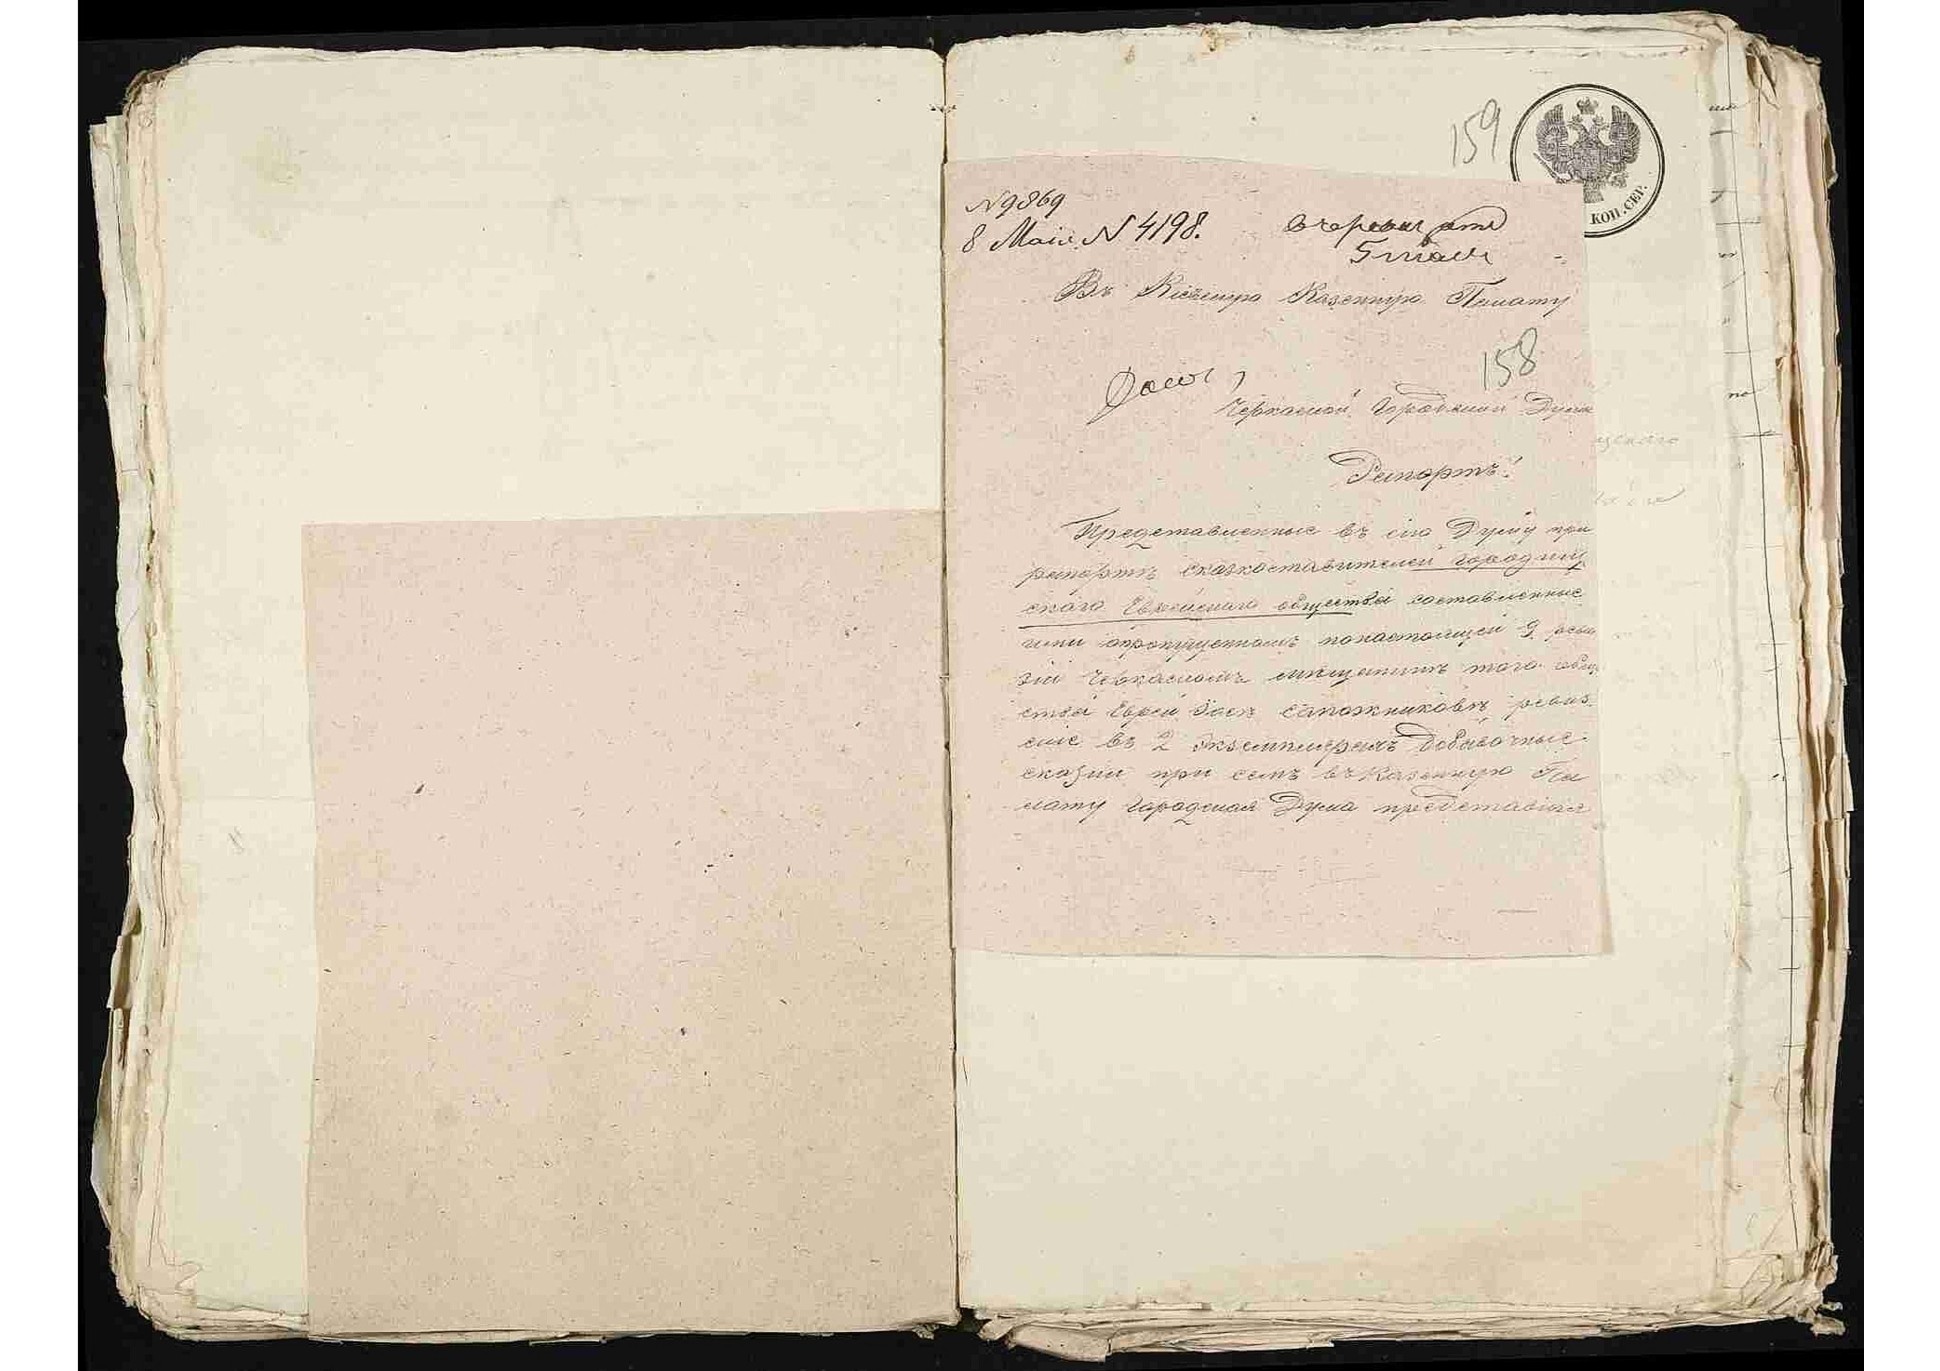 159
КОП. СЕР.
N 9869
8 Маія N 4198.
5 маія
Въ Кіевскую Казенную Палату
158
Черкаской Городской Думы
Рапортъ.
Представленные въ сію Думу при
рапортѣ сказкоставителей Городищ
скаго Еврейскаго общества составленные
ими опропущенномъ понастоящей 9 реви
зіи Черкаскомъ мещанинѣ того обще
ства Еврей Сапожниковѣ ревиз
скіе въ 2 экземплярахъ добавочные
сказки при семъ въ Казенную Па
лату Городская Дума представляя